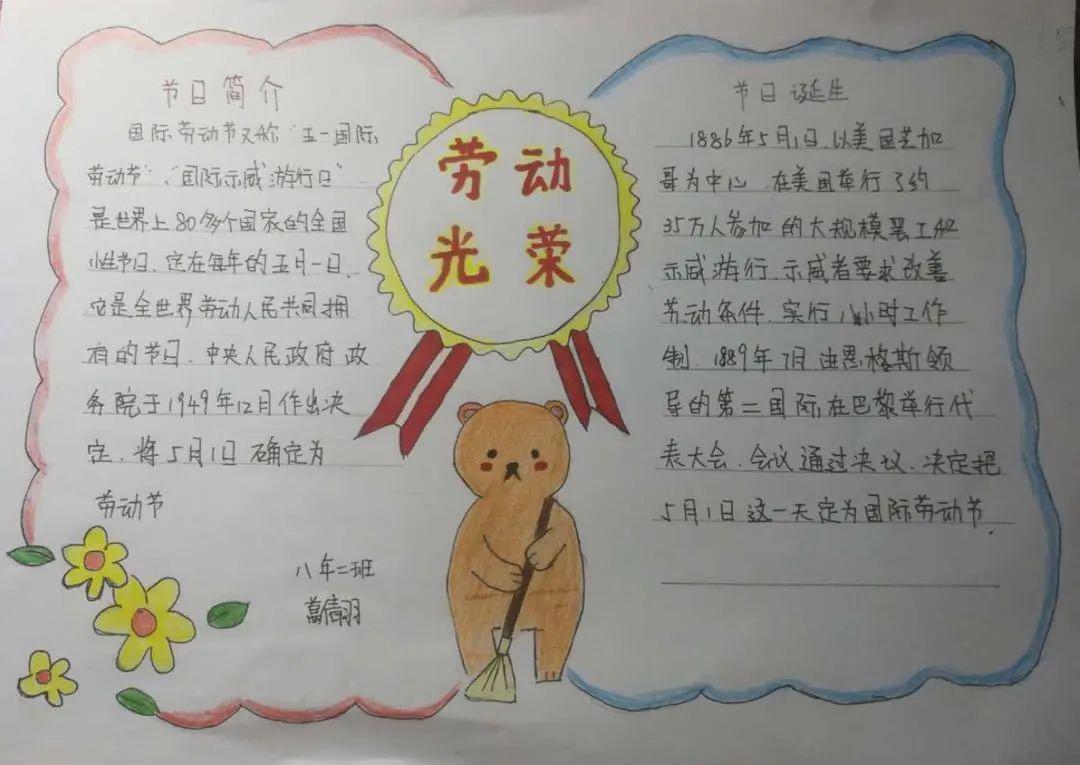 节日简介
国际劳动节又称"五一国际
劳动节"、"国际示威游行日"
是世界上80多个国家的全国
性节日.定在每年的五月一日.
它是全世界劳动人民共同拥
有的节日.中央人民政府政
务院于1949年12月作出决
定.将5月1日确定为
劳动节
八年二班
倩羽
劳动
光荣
节日诞生
1886年5月1日.以美国芝加
哥为中心.在美国举行了约
35万人参加的大规模罢工和
示威游行.示威者要求改善
劳动条件.实行八小时工作
制.1889年7月由恩格斯领
导的第二国际在巴黎举行代
表大会.会议通过决议.决定把
5月1日这一天定为国际劳动节.